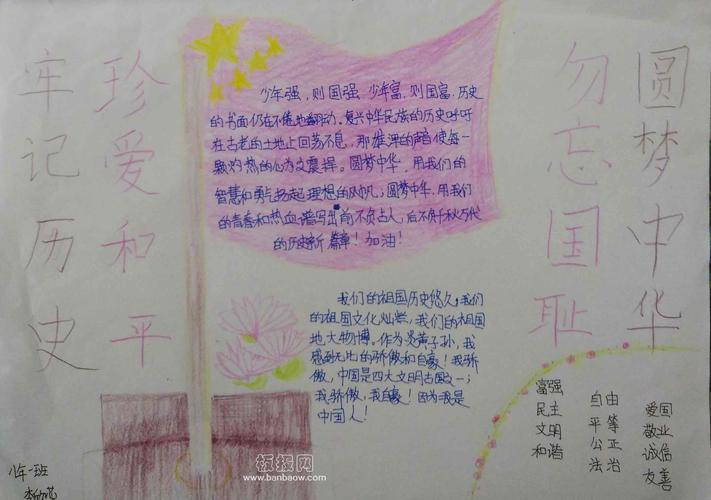 牢记历史
珍爱和平
勿忘国耻
圆梦中华
少年强，则国强，少年富，则国富，历史
的书面仍在不倦地翻动。复兴中华民族的历史呼吁
在古老的土地上回荡不息，那雄浑的声音使每一
颗灼热的心为之震撼。圆梦中华，用我们的
智慧和勇气扬起理想的风帆；圆梦中华，用我们
的青春和热血谱写出前不负古人，后不负千秋万代
的历史新篇章！加油！
我们的祖国历史悠久，我们
的祖国文化灿烂，我们的祖国
地大物博。作为炎黄子孙，我
感到无比的骄傲和自豪！我骄
傲，中国是四大文明古国之一；
我骄傲，我自豪！因为我是
中国人！
富强
民主
文明
和谐
自由
平等
公正
法治
爱国
敬业
诚信
友善
板报网
www.banbaow.com